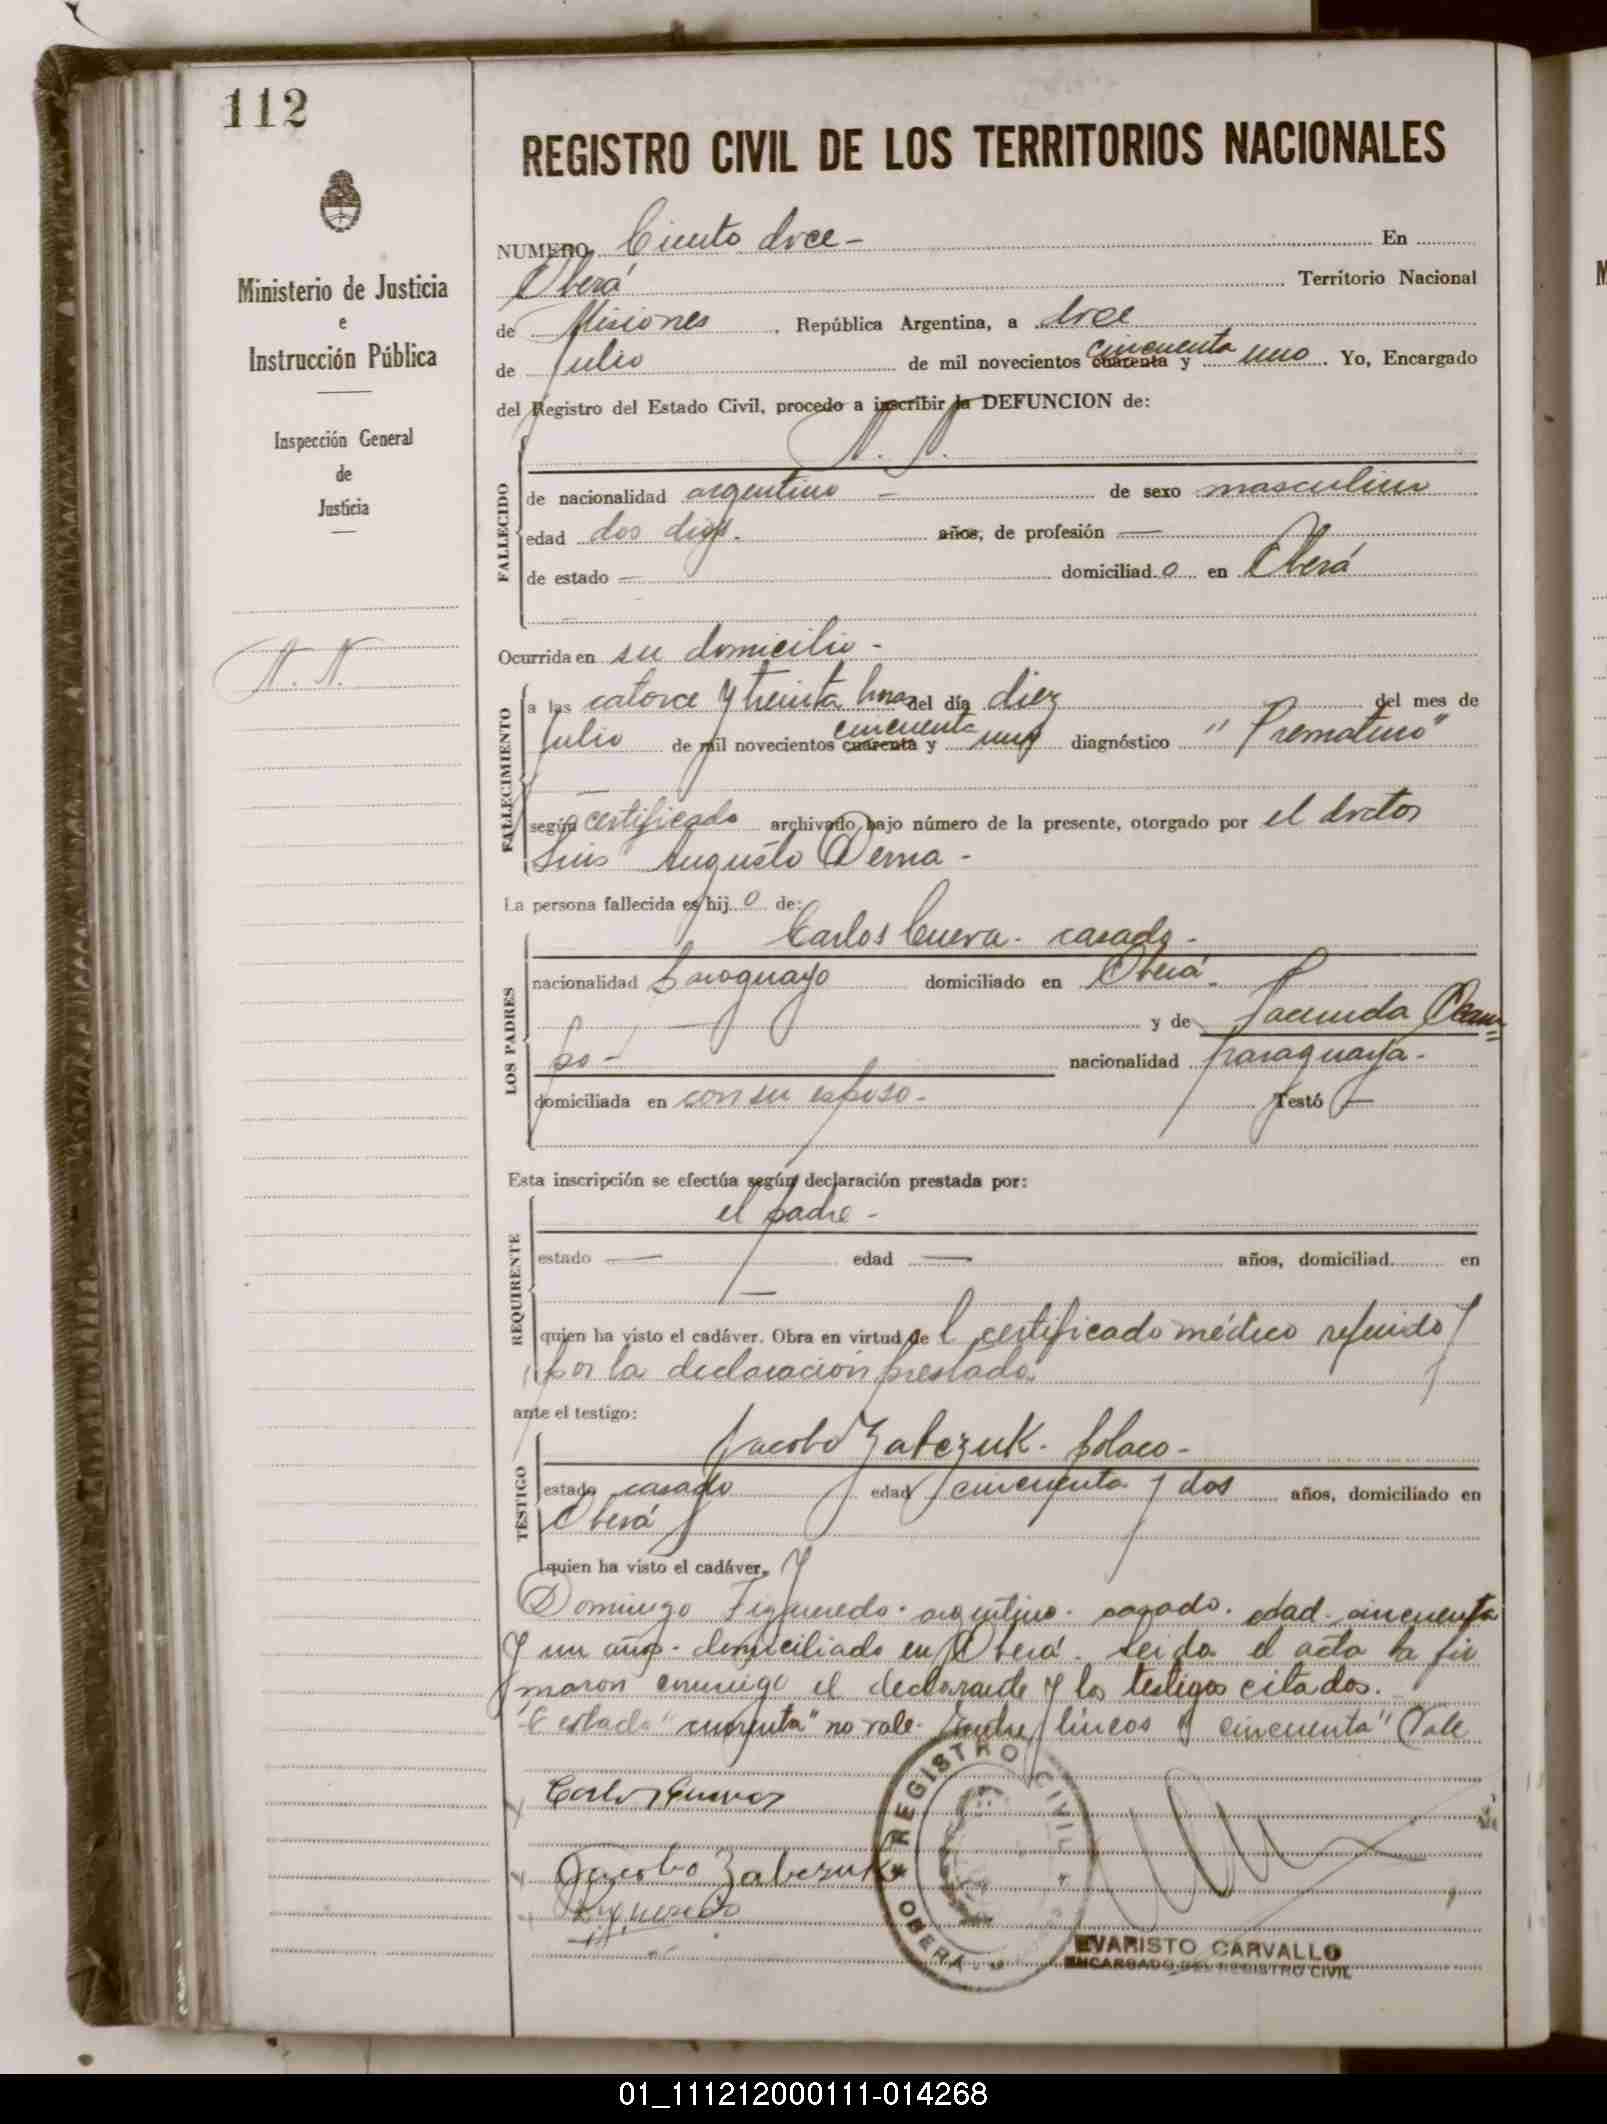 112
Ministerio de Justicia
e
Instrucción Pública
Inspección General
de
Justicia
N. N.
REGISTRO CIVIL DE LOS TERRITORIOS NACIONALES
NUMERO Ciento doce - En
Oberá Territorio Nacional
de Misiones, República Argentina, a doce
de Julio de mil novecientos cuarenta cincuenta y uno. Yo, Encargado
del Registro del Estado Civil, procedo a inscribir la DEFUNCION de:
N. N.
FALLECIDO
de nacionalidad argentino - de sexo masculino
edad dos días. años, de profesión —
de estado — domiciliado en Oberá
Ocurrida en su domicilio -
FALLECIMIENTO
a las catorce y treinta horas del día diez del mes de
Julio de mil novecientos cuarenta cincuenta y uno diagnóstico "Prematuro"
según certificado archivado bajo número de la presente, otorgado por el doctor
Luis Augusto Derna -
La persona fallecida es hijo de:
LOS PADRES
Carlos Cueva - casado -
nacionalidad Paraguayo domiciliado en Oberá.
y de Facunda Ocam=
po - nacionalidad paraguaya -
domiciliada en con su esposo - Testó —
Esta inscripción se efectúa según declaración prestada por:
REQUIRENTE
el padre -
estado — edad — años, domiciliad en
—
quien ha visto el cadáver. Obra en virtud de l certificado médico referido y
por la declaración prestada.
ante el testigo:
TESTIGO
Jacobo Zabczuk - polaco -
estado casado edad cincuenta y dos años, domiciliado en
Oberá
quien ha visto el cadáver, y
Domingo Figueredo - argentino - casado. edad - cincuenta
y un años - domiciliado en Oberá. Leida el acta la fir
maron conmigo el declarante y los testigos citados. -
"cuarenta" no vale. Entre lineas "cincuenta" Vale
Carlos Cuevas
Jacobo Zabczuk
Figueredo
REGISTRO CIVIL
OBERÁ
EVARISTO CARVALLO
ENCARGADO DEL REGISTRO CIVIL
01_111212000111-014268